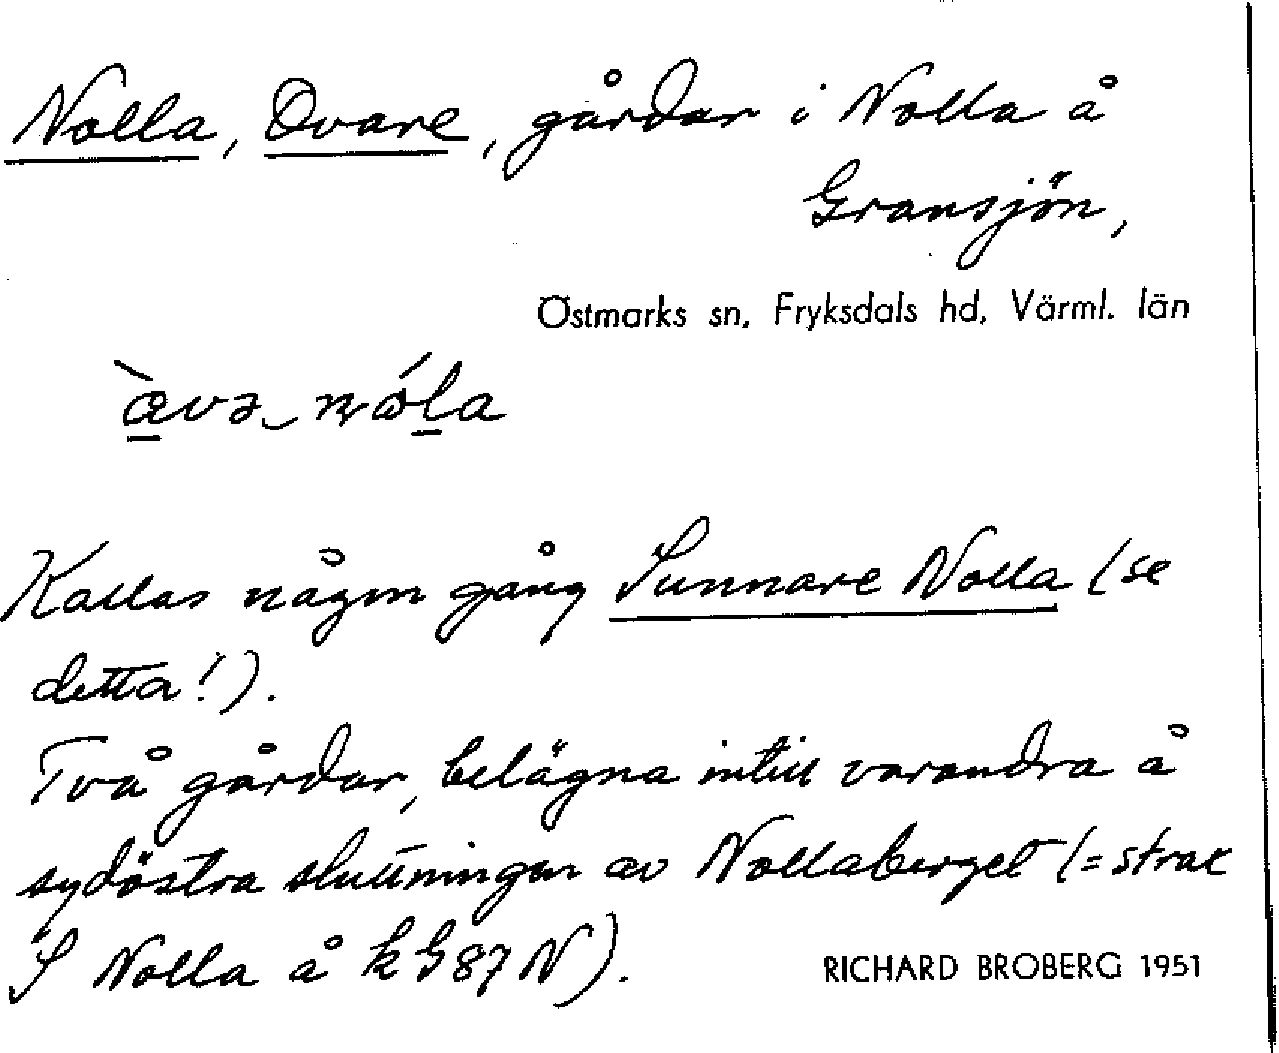 Nolla, Ovare, gårdar i Nolla å
Gransjön,
Östmarks sn, Fryksdals hd, Värml. län
Kallas någon gång Sunnare Nolla (se
detta!).
Två gårdar, belägna intill varandra å
sydöstra sluttningen av Nollaberget (= strax
S Nolla å k G 87 N).
RICHARD BROBERG 1951